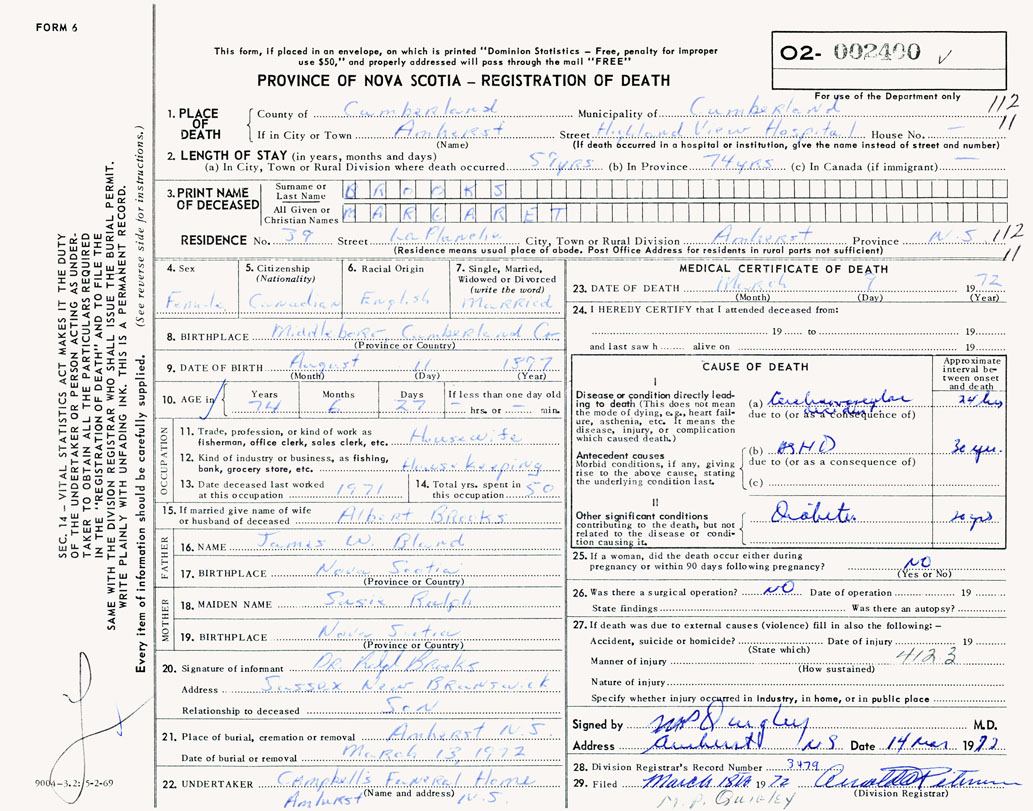 FORM 6
This form, if placed in an envelope, on which is printed "Dominion Statistics – Free, penalty for improper
use $50," and properly addressed will pass through the mail "FREE"
PROVINCE OF NOVA SCOTIA – REGISTRATION OF DEATH
O2- 002400
For use of the Department only
112
11
1. PLACE OF DEATH
County of Cumberland Municipality of Cumberland
If in City or Town Amherst Street Highland View Hospital House No. –
(Name) (If death occurred in a hospital or institution, give the name instead of street and number)
2. LENGTH OF STAY (in years, months and days)
(a) In City, Town or Rural Division where death occurred 59 yrs (b) In Province 74 yrs (c) In Canada (if immigrant) –
3. PRINT NAME OF DECEASED
Surname or Last Name BROOKS
All Given or Christian Names MARGARET
RESIDENCE No. 39 Street La Planche City, Town or Rural Division Amherst Province N.S. 112
(Residence means usual place of abode. Post Office Address for residents in rural parts not sufficient) 11
4. Sex
Female
5. Citizenship
(Nationality)
Canadian
6. Racial Origin
English
7. Single, Married,
Widowed or Divorced
(write the word)
Married
8. BIRTHPLACE Middleboro, Cumberland Co
(Province or Country)
9. DATE OF BIRTH August 11 1897
(Month) (Day) (Year)
10. AGE in Years Months Days If less than one day old
74 6 27 – hrs. or – min.
OCCUPATION
11. Trade, profession, or kind of work as
fisherman, office clerk, sales clerk, etc. Housewife
12. Kind of industry or business, as fishing,
bank, grocery store, etc. House keeping
13. Date deceased last worked
at this occupation 1971
14. Total yrs. spent in
this occupation 50
15. If married give name of wife
or husband of deceased Albert Brooks
FATHER
16. NAME James W. Bland
17. BIRTHPLACE Nova Scotia
(Province or Country)
MOTHER
18. MAIDEN NAME Susie Ralph
19. BIRTHPLACE Nova Scotia
(Province or Country)
20. Signature of informant Dr. Brooks
Address Sussex New Brunswick
Relationship to deceased Son
21. Place of burial, cremation or removal Amherst N.S.
Date of burial or removal March 13, 1972
22. UNDERTAKER Campbell's Funeral Home
(Name and address)
Amherst N.S.
MEDICAL CERTIFICATE OF DEATH
23. DATE OF DEATH March 9 1972
(Month) (Day) (Year)
24. I HEREBY CERTIFY that I attended deceased from:
19 to 19
and last saw h alive on 19
CAUSE OF DEATH
Approximate
interval be-
tween onset
and death
I
Disease or condition directly lead-
ing to death (This does not mean
the mode of dying, e.g., heart fail-
ure, asthenia, etc. It means the
disease, injury, or complication
which caused death.)
(a) Cerebrovascular accident 24 hrs
due to (or as a consequence of)
Antecedent causes
Morbid conditions, if any, giving
rise to the above cause, stating
the underlying condition last.
(b) ASHD 30 yrs.
due to (or as a consequence of)
(c)
II
Other significant conditions
contributing to the death, but not
related to the disease or condi-
tion causing it.
Diabetes yrs
25. If a woman, did the death occur either during
pregnancy or within 90 days following pregnancy? NO
(Yes or No)
26. Was there a surgical operation? NO Date of operation 19
State findings Was there an autopsy?
27. If death was due to external causes (violence) fill in also the following: –
Accident, suicide or homicide? Date of injury 19
(State which)
Manner of injury 4123
(How sustained)
Nature of injury
Specify whether injury occurred in industry, in home, or in public place
Signed by MP Quigley M.D.
Address Amherst N.S. Date 14 Mar 1972
28. Division Registrar's Record Number 3479
29. Filed March 18th 1972
(Division Registrar)
M.P. QUIGLEY
SEC. 14 – VITAL STATISTICS ACT MAKES IT THE DUTY
OF THE UNDERTAKER OR PERSON ACTING AS UNDER-
TAKER TO OBTAIN ALL THE PARTICULARS REQUIRED
IN THE "REGISTRATION OF DEATH" AND TO FILE THE
SAME WITH THE DIVISION REGISTRAR WHO SHALL ISSUE THE BURIAL PERMIT.
WRITE PLAINLY WITH UNFADING INK. THIS IS A PERMANENT RECORD.
Every item of information should be carefully supplied. (See reverse side for instructions.)
900A-3.2: 5-2-69